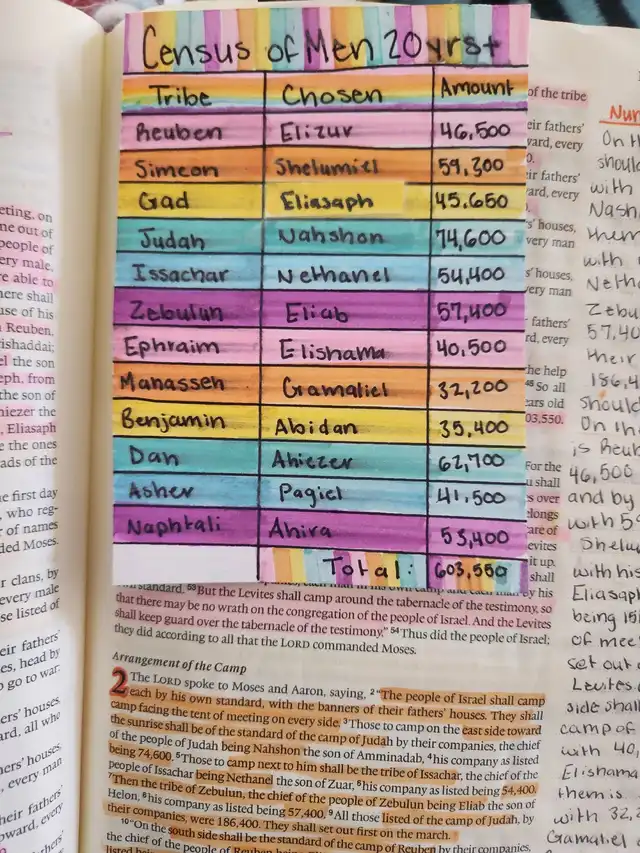 Census of Men 20yrs+
Tribe Chosen Amount
Reuben Elizur 46,500
Simeon Shelumiel 59,300
Gad Eliasaph 45,650
Judah Nahshon 74,600
Issachar Nethanel 54,400
Zebulun Eliab 57,400
Ephraim Elishama 40,500
Manasseh Gamaliel 32,200
Benjamin Abidan 35,400
Dan Ahiezer 62,700
Asher Pagiel 41,500
Naphtali Ahira 53,400
Total: 603,550
standard. 53 But the Levites shall camp around the tabernacle of the testimony, so
that there may be no wrath on the congregation of the people of Israel. And the Levites
shall keep guard over the tabernacle of the testimony." 54 Thus did the people of Israel;
they did according to all that the LORD commanded Moses.
Arrangement of the Camp
2 The LORD spoke to Moses and Aaron, saying, 2 "The people of Israel shall camp
each by his own standard, with the banners of their fathers' houses. They shall
camp facing the tent of meeting on every side. 3 Those to camp on the east side toward
the sunrise shall be of the standard of the camp of Judah by their companies, the chief
of the people of Judah being Nahshon the son of Amminadab, 4 his company as listed
being 74,600. 5 Those to camp next to him shall be the tribe of Issachar, the chief of the
people of Issachar being Nethanel the son of Zuar, 6 his company as listed being 54,400.
7 Then the tribe of Zebulun, the chief of the people of Zebulun being Eliab the son of
Helon, 8 his company as listed being 57,400. 9 All those listed of the camp of Judah, by
their companies, were 186,400. They shall set out first on the march.
10 "On the south side shall be the standard of the camp of Reuben by their companies,
the chief of the people of Reuben being
of the tribe
eir fathers'
vard, every
0.
eir fathers'
ard, every
s' houses,
very man
s' houses,
very man
fathers'
rd, every
he help
46 So all
ears old
03,550.
For the
u shall
s over
elongs
are of
evites
it up.
shall
by his
eting, on
me out of
people of
ery male,
re able to
here shall
use of his
Reuben,
ishaddai;
el the son
eph, from
the son of
hiezer the
Eliasaph
e the ones
ads of the
e first day
, who reg-
r of names
ded Moses.
r clans, by
every male
se listed of
eir fathers'
es, head by
o go to war:
ers' houses,
ard, all who
hers' houses,
, every man
heir fathers'
pward, every
fathers'
Num
On th
should
with
Nash
them
with
Netha
Zebu
57,40
their
186,4
should
On th
is Reub
46,500
and by
with 59
Shelu
with his
Eliasaph
being 15
of mee
set out
Levites
side shall
camp of
with 40,
Elishama
them is
with 32,2
Gamaliel